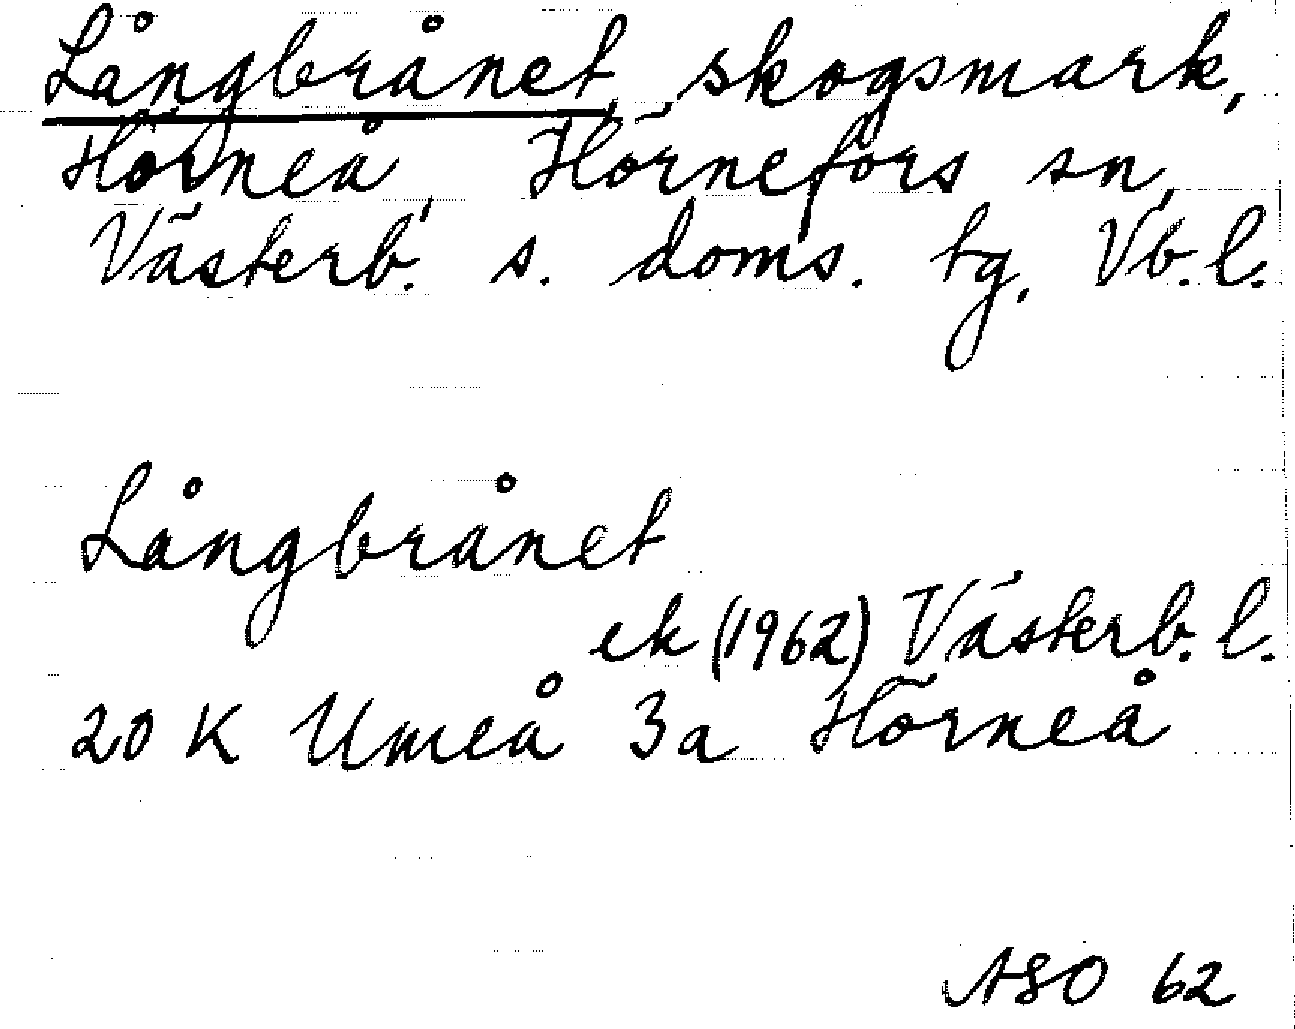 Långbrånet, skogsmark,
Hörneå, Hörnefors sn,
Västerb. s. doms. tg, Vb. l.
Långbrånet
ek (1962) Västerb. l.
20 K Umeå 3a Hörneå
ASO 62